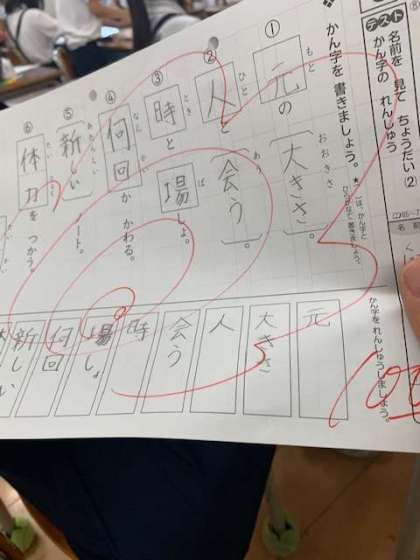 テスト
名前を 見て ちょうだい②
かん字の れんしゅう
かん字を 書きましょう。
① 元の 大きさ。
もと
おおきさ
② 人と 会う。
ひと
あ
③ 時と 場しょ。
とき
ば
④ 何回か かわる。
なん
かい
⑤ 新しい ノート。
あたらしい
⑥ 体力を つかう。
たい
りょく
かん字を れんしゅうしましょう。
元
大きさ
人
会う
時
場しょ
何回
新しい
100